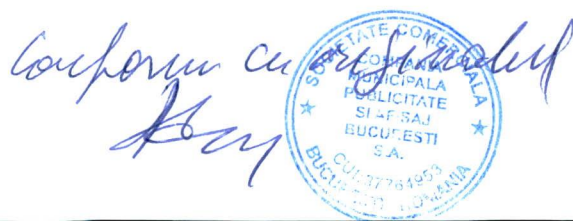 Conform cu originalul
SOCIETATE COMERCIALA
COMPANIA
MUNICIPALA
PUBLICITATE
SI AFISAJ
BUCURESTI
S.A.
CUI:37764953
BUCURESTI ROMANIA